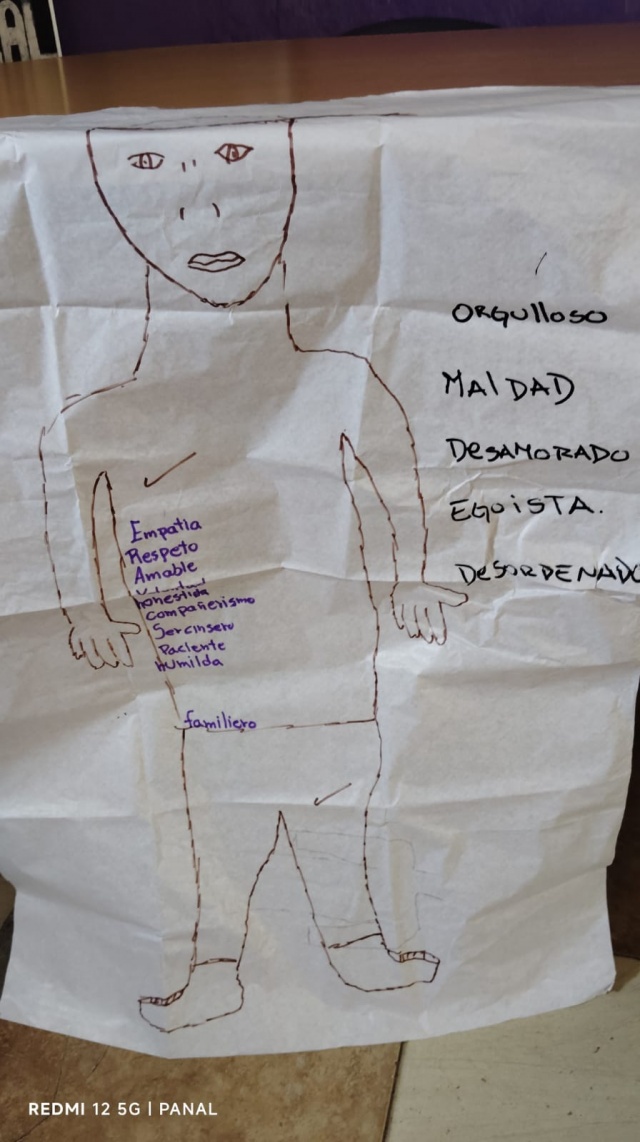 AL
ORGUlloSO
MAlDAD
DESAMORADO
EGOiSTA.
DESORDENADO
Empatia
Respeto
Amable
honestida
Compañerismo
Ser cinsero
Paciente
humilda
familiero
REDMI 12 5G | PANAL